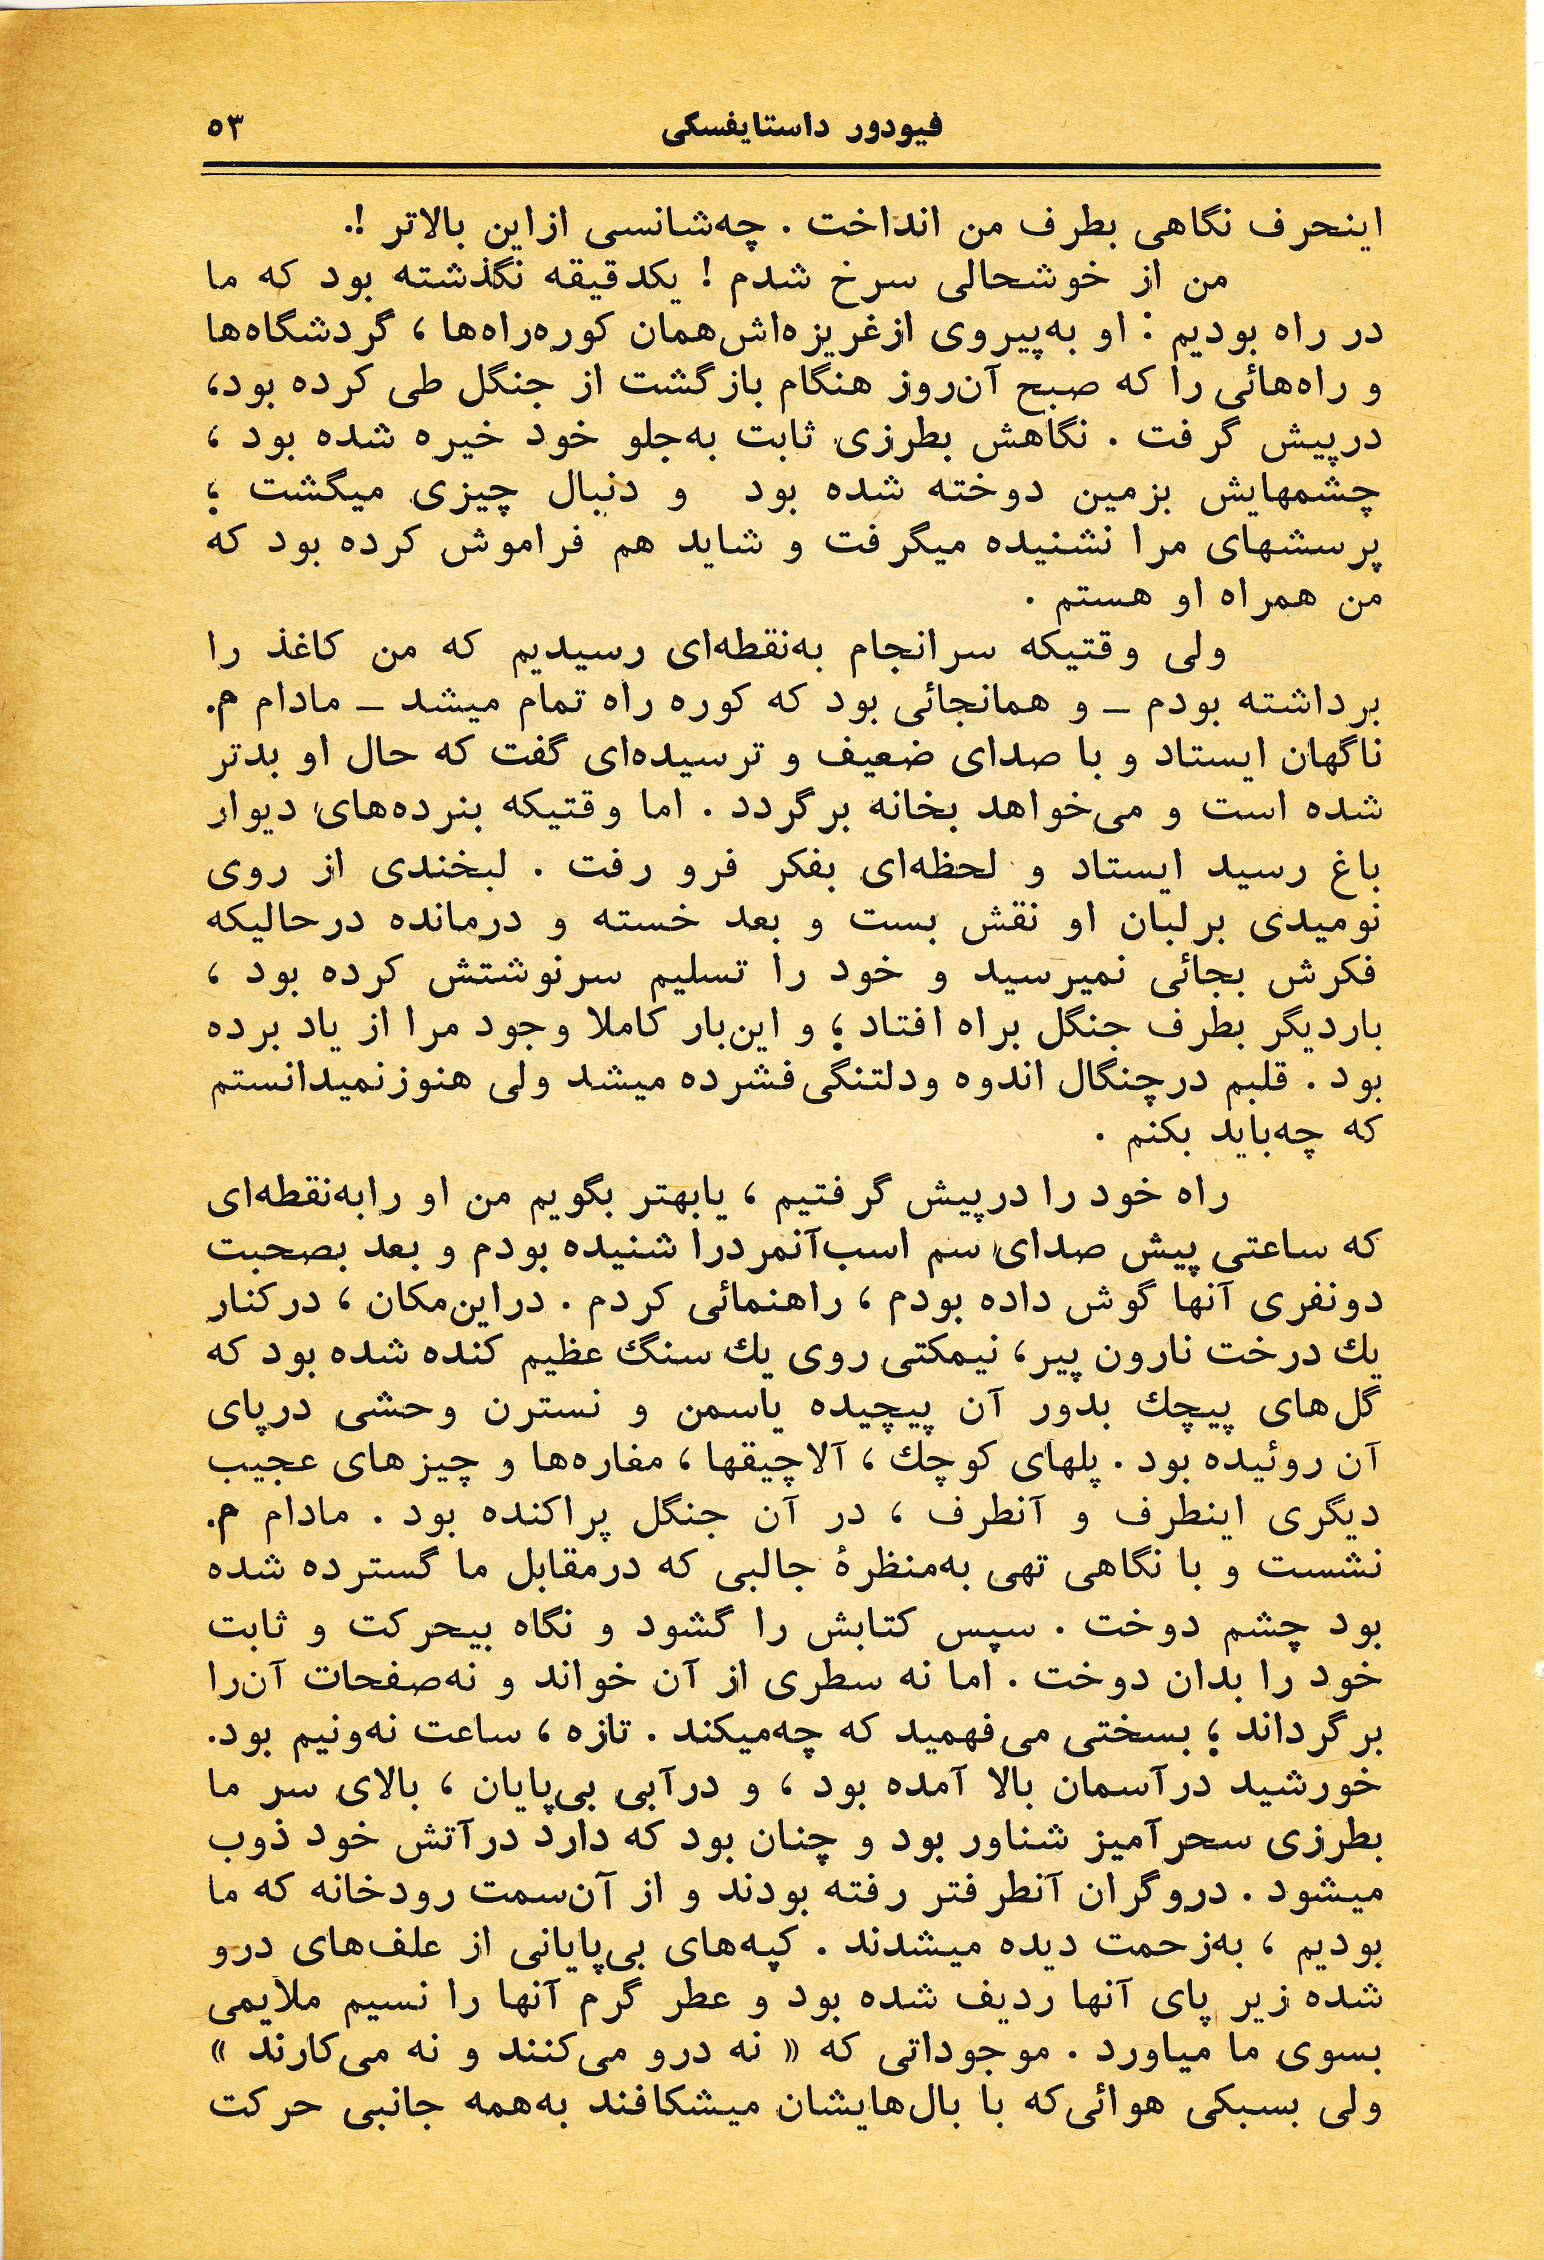 فیودور داستایفسکی ۵۳
اینحرف نگاهی بطرف من انداخت . چه‌شانسی ازاین بالاتر !.
من از خوشحالی سرخ شدم ! یکدقیقه نگذشته بود که ما
در راه بودیم : او به‌پیروی ازغریزه‌اش‌همان کوره‌راه‌ها ، گردشگاه‌ها
و راه‌هائی را که صبح آن‌روز هنگام بازگشت از جنگل طی کرده بود،
درپیش گرفت . نگاهش بطرزی ثابت به‌جلو خود خیره شده بود ،
چشمهایش بزمین دوخته شده بود و دنبال چیزی میگشت ؛
پرسشهای مرا نشنیده میگرفت و شاید هم فراموش کرده بود که
من همراه او هستم .
ولی وقتیکه سرانجام به‌نقطه‌ای رسیدیم که من کاغذ را
برداشته بودم ــ و همانجائی بود که کوره راه تمام میشد ــ مادام م.
ناگهان ایستاد و با صدای ضعیف و ترسیده‌ای گفت که حال او بدتر
شده است و می‌خواهد بخانه برگردد . اما وقتیکه بنرده‌های دیوار
باغ رسید ایستاد و لحظه‌ای بفکر فرو رفت . لبخندی از روی
نومیدی برلبان او نقش بست و بعد خسته و درمانده درحالیکه
فکرش بجائی نمیرسید و خود را تسلیم سرنوشتش کرده بود ،
باردیگر بطرف جنگل براه افتاد ؛ و این‌بار کاملا وجود مرا از یاد برده
بود . قلبم درچنگال اندوه ودلتنگی‌فشرده میشد ولی هنوزنمیدانستم
که چه‌باید بکنم .
راه خود را درپیش گرفتیم ، یابهتر بگویم من او رابه‌نقطه‌ای
که ساعتی پیش صدای سم اسب‌آنمردرا شنیده بودم و بعد بصحبت
دونفری آنها گوش داده بودم ، راهنمائی کردم . دراین‌مکان ، درکنار
یك درخت نارون پیر، نیمکتی روی یك سنگ عظیم کنده شده بود که
گل‌های پیچك بدور آن پیچیده یاسمن و نسترن وحشی درپای
آن روئیده بود . پلهای کوچك ، آلاچیقها ، مغاره‌ها و چیزهای عجیب
دیگری اینطرف و آنطرف ، در آن جنگل پراکنده بود . مادام م.
نشست و با نگاهی تهی به‌منظرهٔ جالبی که درمقابل ما گسترده شده
بود چشم دوخت . سپس کتابش را گشود و نگاه بیحرکت و ثابت
خود را بدان دوخت . اما نه سطری از آن خواند و نه‌صفحات آن‌را
برگرداند ؛ بسختی می‌فهمید که چه‌میکند . تازه ، ساعت نه‌ونیم بود.
خورشید درآسمان بالا آمده بود ، و درآبی بی‌پایان ، بالای سر ما
بطرزی سحرآمیز شناور بود و چنان بود که دارد درآتش خود ذوب
میشود . دروگران آنطرفتر رفته بودند و از آن‌سمت رودخانه که ما
بودیم ، به‌زحمت دیده میشدند . کپه‌های بی‌پایانی از علف‌های درو
شده زیر پای آنها ردیف شده بود و عطر گرم آنها را نسیم ملایمی
بسوی ما میاورد . موجوداتی که « نه درو می‌کنند و نه می‌کارند »
ولی بسبکی هوائی‌که با بال‌هایشان میشکافند به‌همه جانبی حرکت